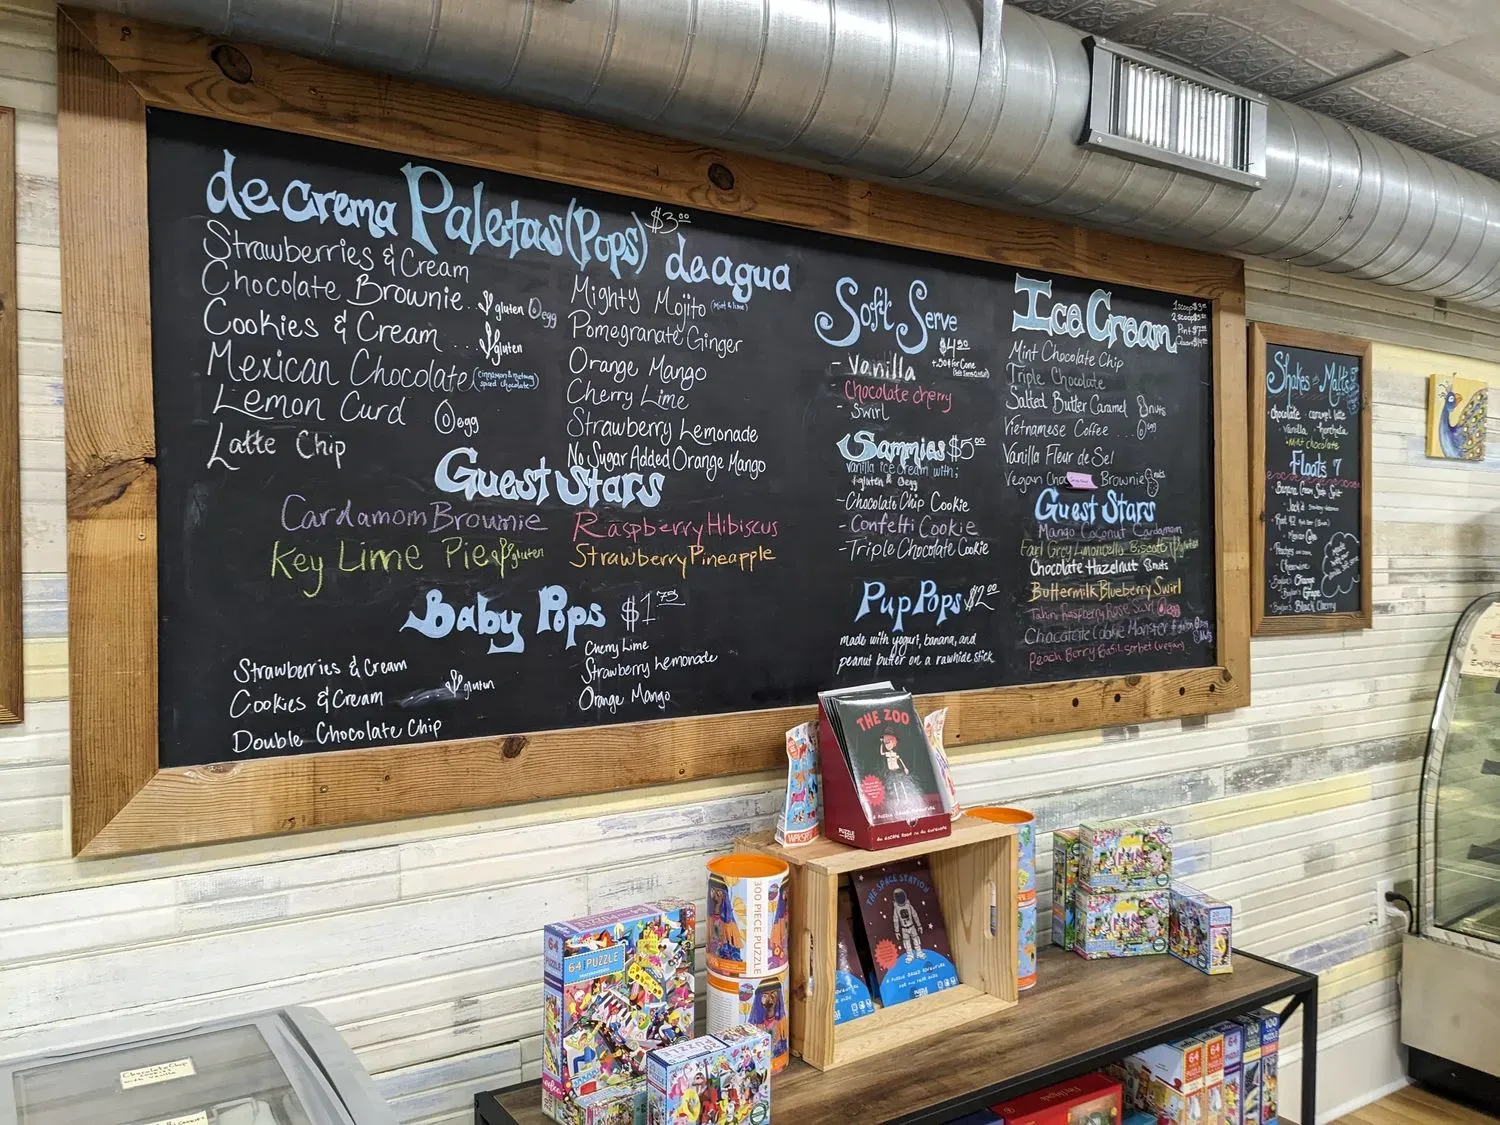 de crema Paletas (Pops) $3.00 de agua
Strawberries & Cream
Chocolate Brownie... gluten egg
Cookies & Cream ... gluten
Mexican Chocolate (cinnamon & nutmeg
spiced chocolate)
Lemon Curd egg
Latte Chip
Mighty Mojito (mint & lime)
Pomegranate Ginger
Orange Mango
Cherry Lime
Strawberry Lemonade
No Sugar Added Orange Mango
Guest Stars
Cardamom Brownie
Key Lime Pie gluten
Raspberry Hibiscus
Strawberry Pineapple
Baby Pops $1.75
Strawberries & Cream
Cookies & Cream gluten
Double Chocolate Chip
Cherry Lime
Strawberry Lemonade
Orange Mango
Soft Serve
$4.50
- Vanilla
- Chocolate cherry
- swirl
Sammies $5.00
vanilla ice cream with;
gluten & egg
- Chocolate Chip Cookie
- Confetti Cookie
- Triple Chocolate Cookie
Pup Pops $2.00
made with yogurt, banana, and
peanut butter on a rawhide stick
Ice Cream
1 scoop
2 scoop
Mint Chocolate Chip
Triple Chocolate
Salted Butter Caramel nuts
Vietnamese Coffee ... egg
Vanilla Fleur de Sel
Vegan Brownie nuts
Guest Stars
Mango Coconut Cardamom
Earl Grey Limoncello Biscotti gluten
Chocolate Hazelnut nuts
Buttermilk Blueberry Swirl
Tahini Raspberry Rose Swirl egg
Chocolate Cookie Monster gluten
Peach Berry Basil sorbet (vegan)
Shakes Malts
Chocolate caramel latte
vanilla horchata
mint chocolate
Floats 7
Peaches
Cheerwine
Orange
Grape
Black Cherry
THE ZOO
THE SPACE STATION
300 PIECE PUZZLE
64 PUZZLE
64
PUZZLE
Chocolate Chip
with vanilla